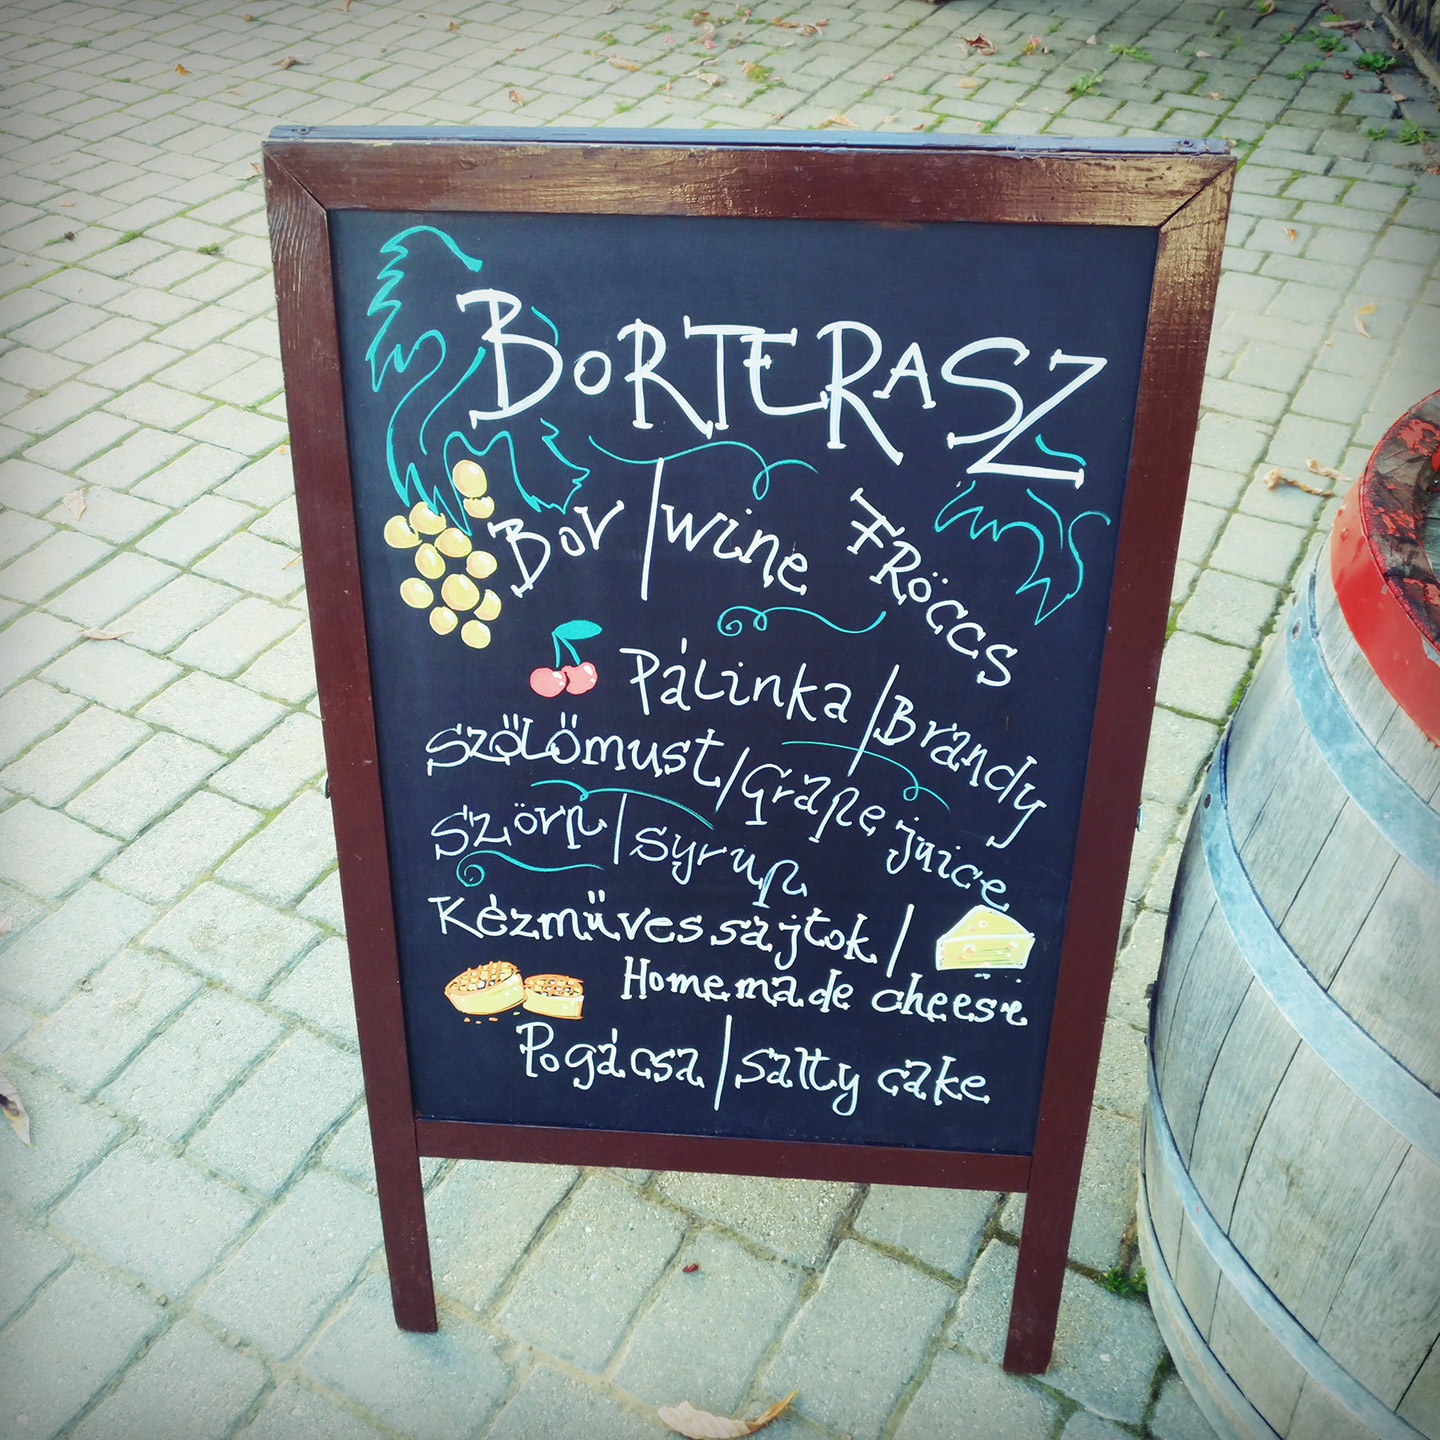 BORTERASZ
Bor/wine FRÖCCS
Pálinka/Brandy
Szőlőmust/Grape juice
Szörp/syrup
Kézműves sajtok/
Homemade cheese
Pogácsa/salty cake